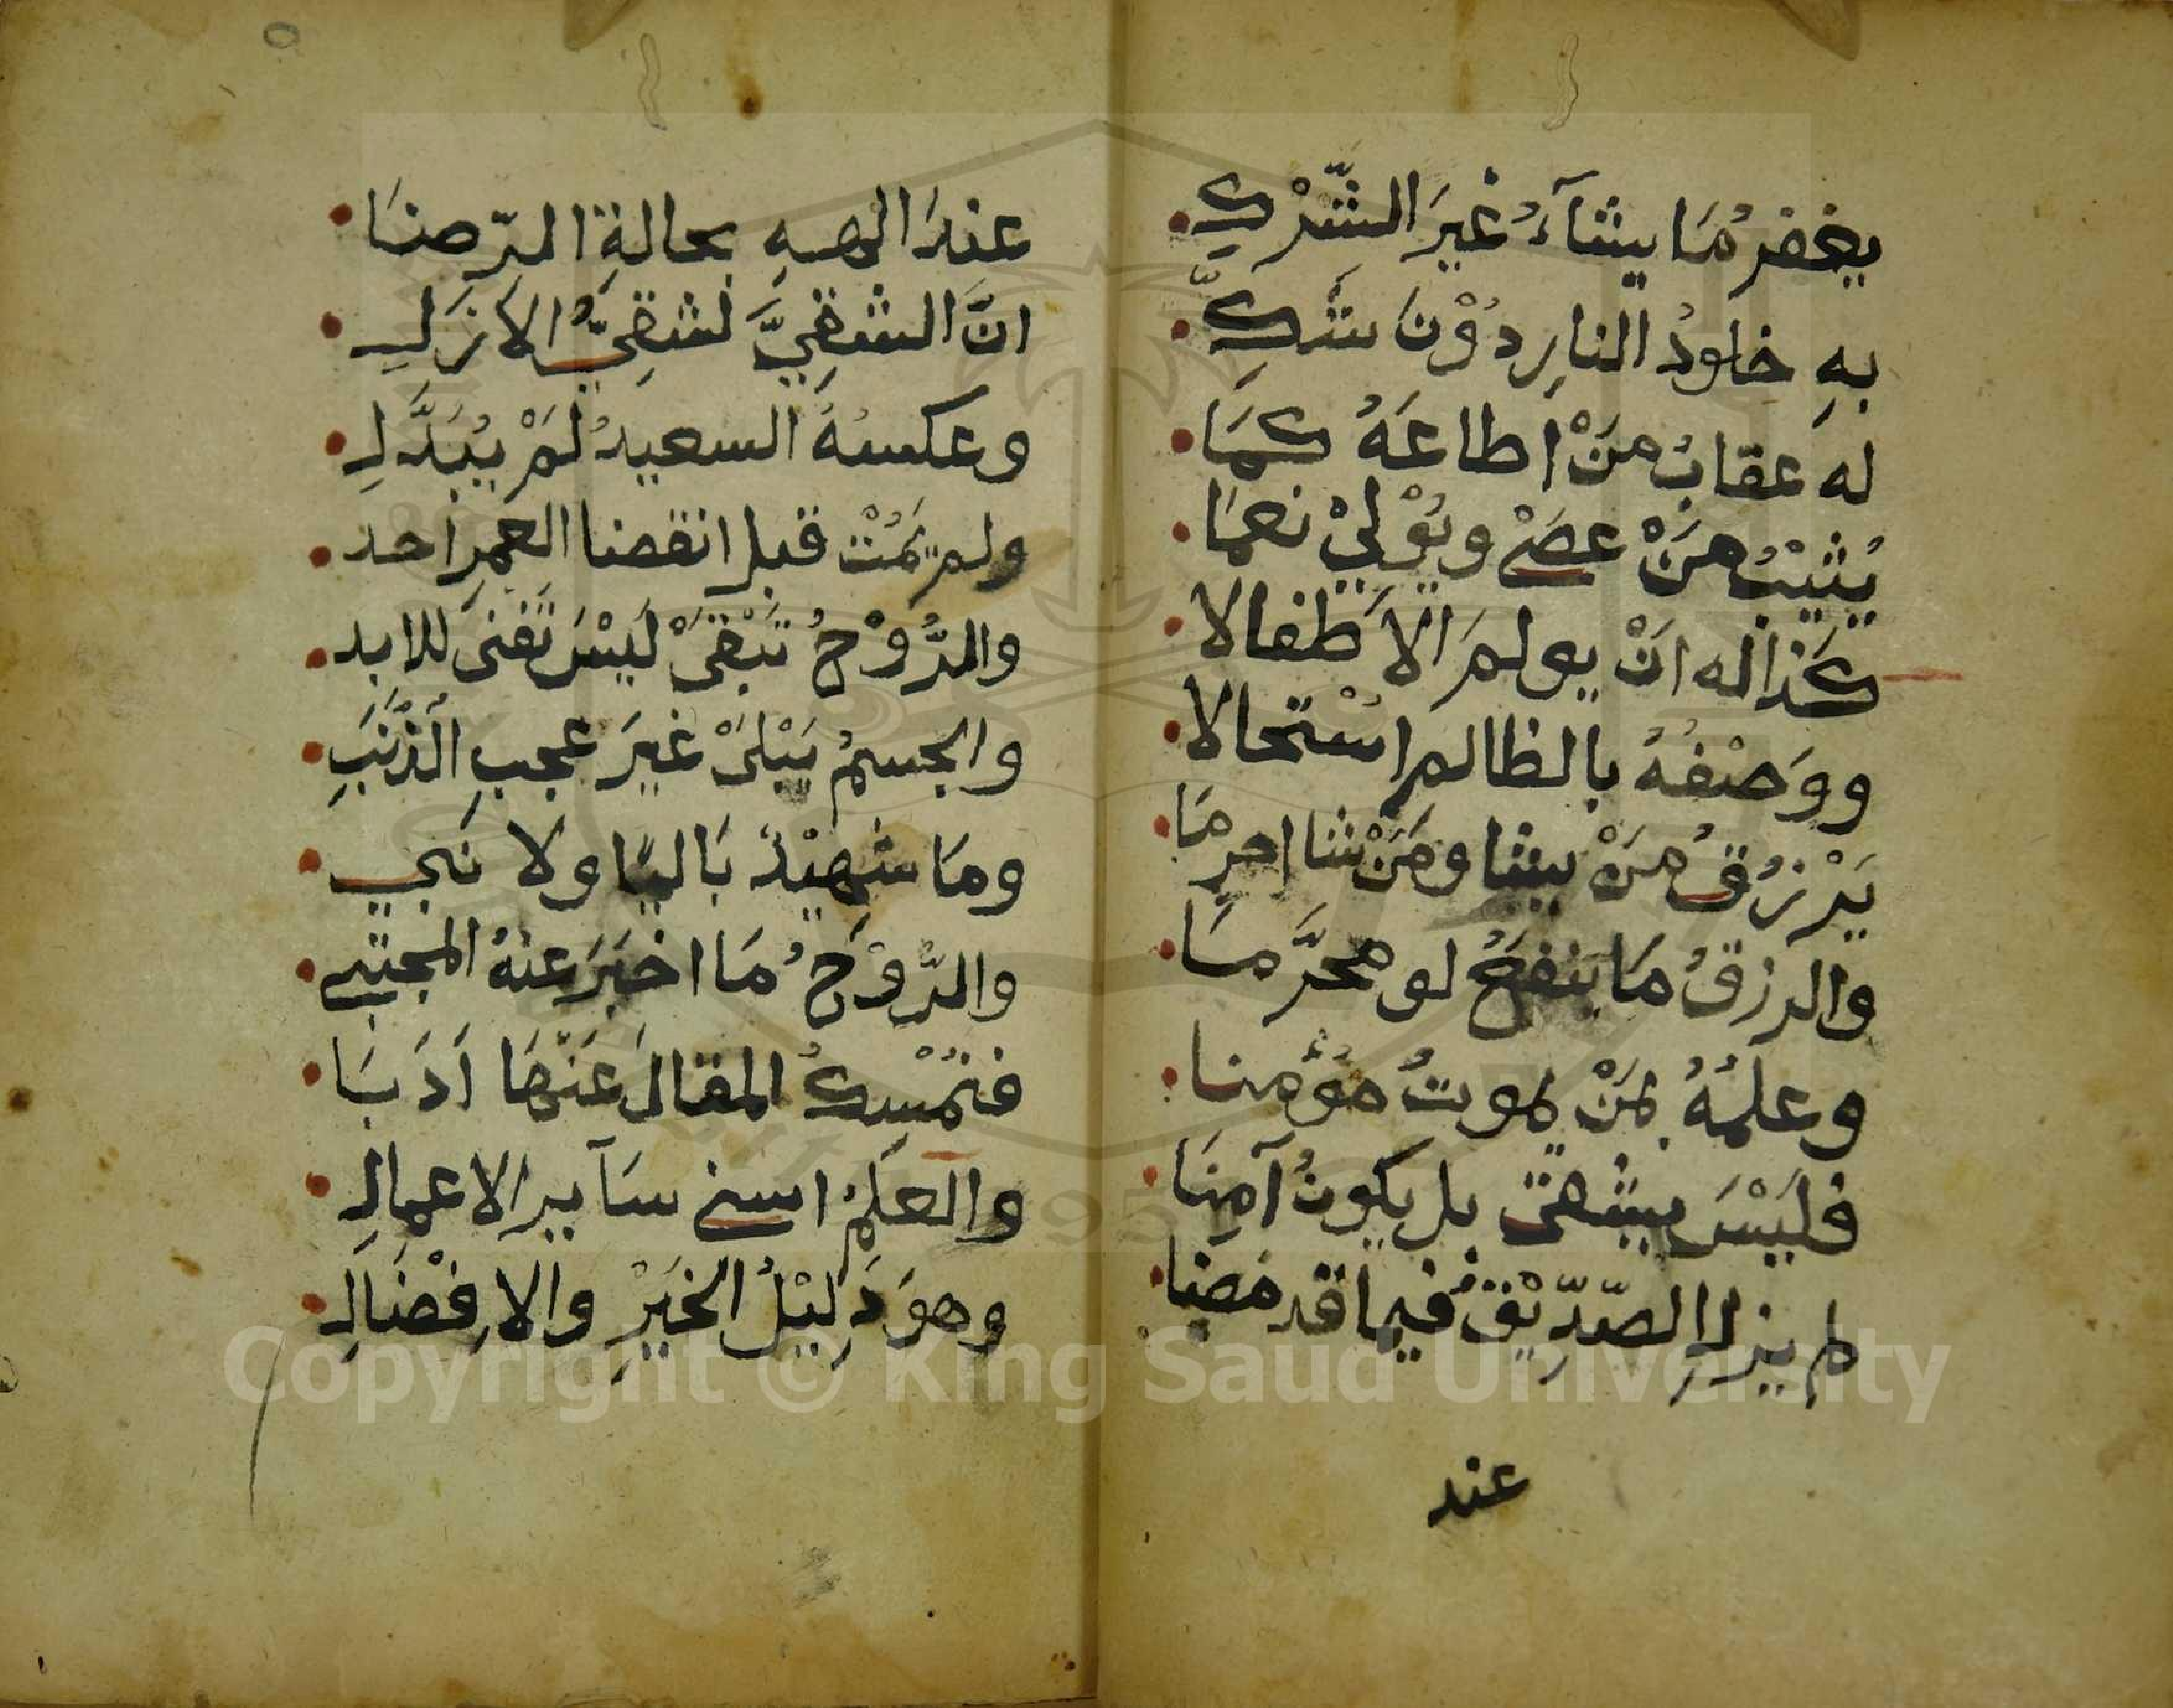 يغفرُ مَا يشآءُ غيرَ الشِّرْكِ
بهِ خلودُ النارِ دُوْنَ شَكِّ
له عقابُ منْ اطاعَهُ كمَا
يُثيْبُ منْ عصَى ويُوْلِيْ نعمَا
كذا له انْ يولمَ الاَطفالا
ووَصْفُهُ بالظالم اسْتحالا
يَرْزُقُ منْ يشا ومَنْ شا احرمَا
والرزقُ مَا ينفعُ لو محرَّمَا
وعلمُهُ بمَنْ يموتُ مؤمنا
فليْسَ يشقى بل يكونُ آمِنَا
لم يزلِ الصّدِّيْقُ فيما قد مضا
عند
عندَ الهِهِ بحالةِ الرّضَا
انَّ الشقِيَّ لشقِيُّ الاَزَلِ
وعكسهُ السعيدُ لَمْ يُبَدَّلِ
ولم يَمُتْ قبل انقضا العمرِ احد
والرُّوْحُ تَبْقَىْ لَيْسَ تَفنى للابد
والجسمُ يَبْلَىْ غيرَ عجبِ الذَّنَبِ
ومَا شهيْدٌ بَاليًا ولا نَبي
والرُّوْحُ مَا اخبَرَ عنهُ المجتبى
فنُمْسِكُ المقالَ عَنْهَا اَدَبَا
والعلمُ اسنى سَآيرِ الاعمالِ
وهوَ دَلِيْلُ الخَيْرِ والاِفْضَالِ
Copyright © King Saud University